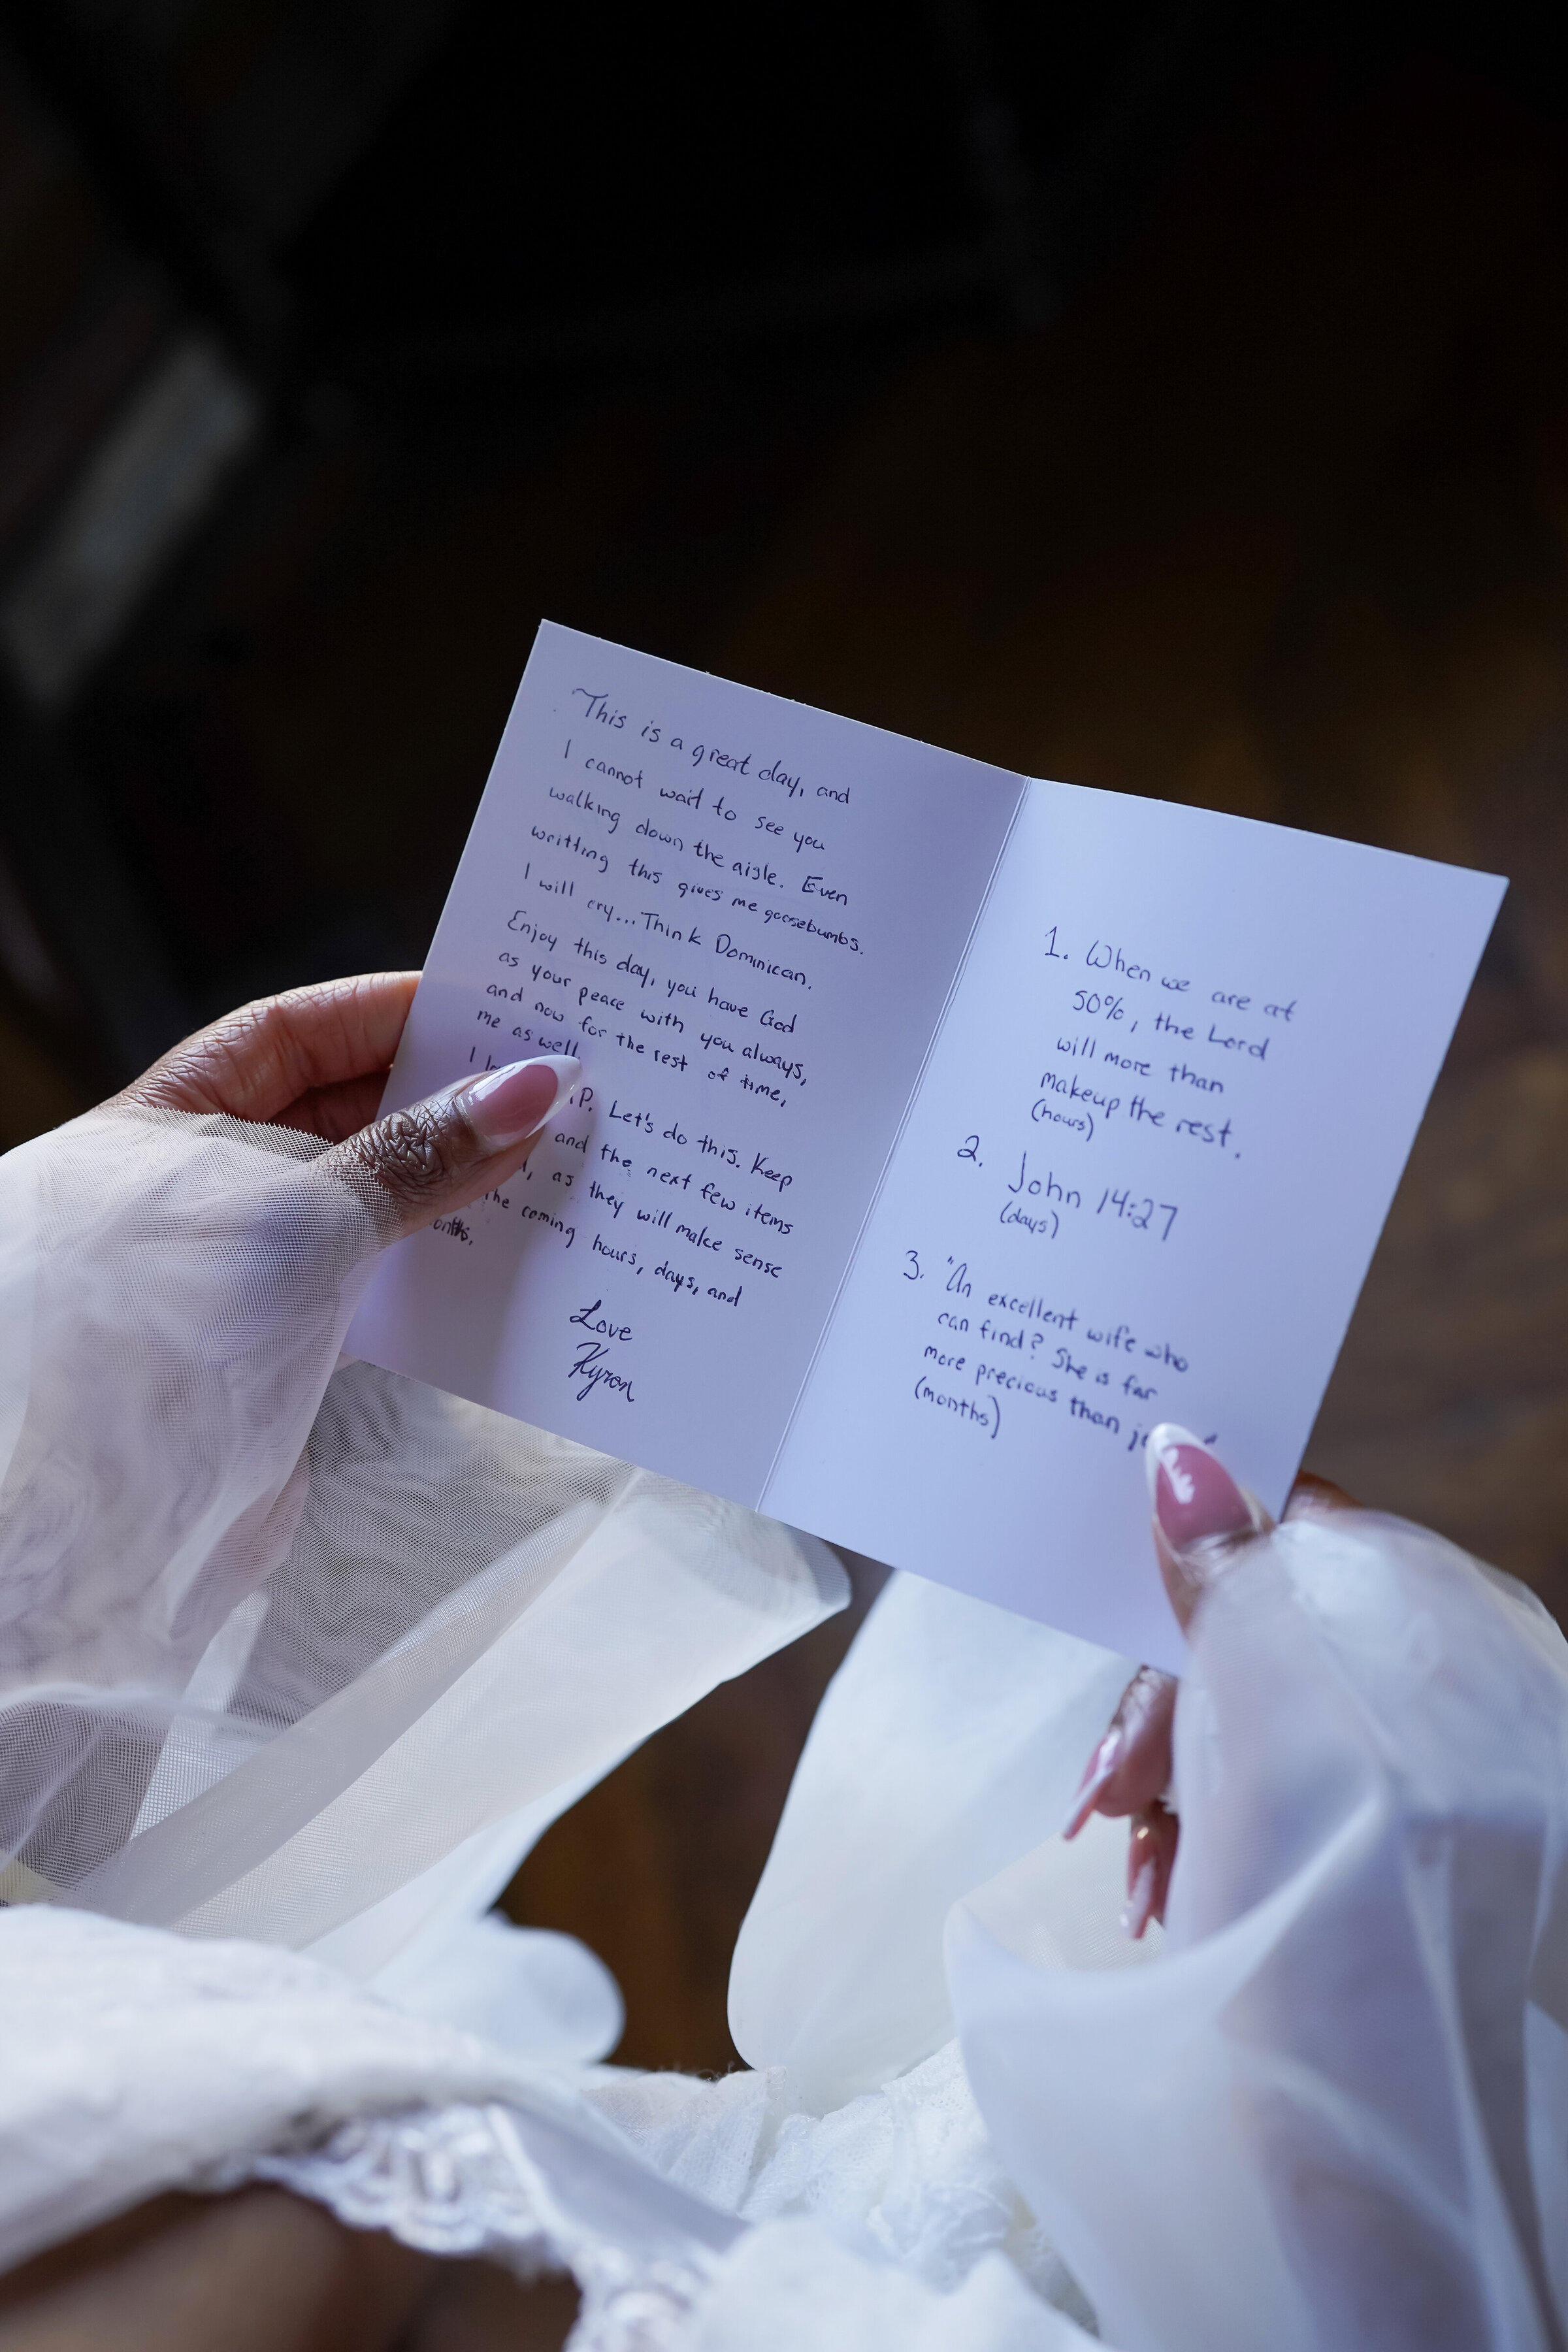 This is a great day, and
I cannot wait to see you
walking down the aisle. Even
writting this gives me goosebumbs.
I will cry... Think Dominican.
Enjoy this day, you have God
as your peace with you always,
and now for the rest of time,
me as well.
I P. Let's do this. Keep
and the next few items
as they will make sense
the coming hours, days, and
Love
Kyron
1. When we are at
50%, the Lord
will more than
makeup the rest.
(hours)
2. John 14:27
(days)
3. "An excellent wife who
can find? She is far
more precious than "
(months)